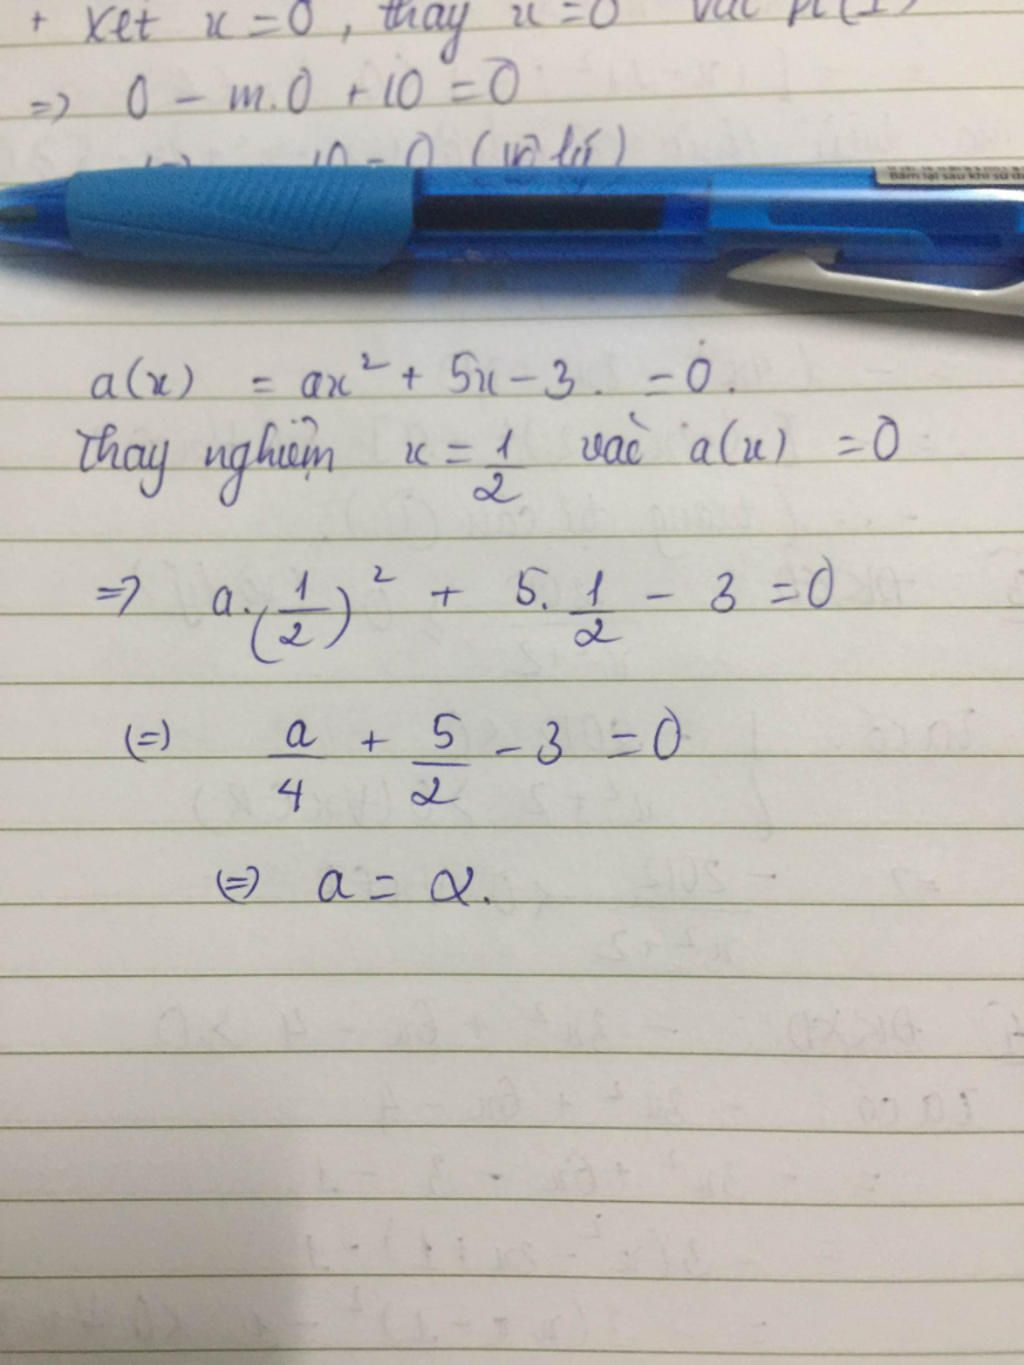 + Xét x = 0, thay x = 0 vào
=> 0 - m.0 + 10 = 0
10 = 0 (vô lý)
Bấm lại sau khi sử
a(x) = ax² + 5x - 3. = 0.
Thay nghiệm x = 1/2 vào a(x) = 0
=> a.(1/2)² + 5. 1/2 - 3 = 0
(=) a/4 + 5/2 - 3 = 0
(=) a = 2.